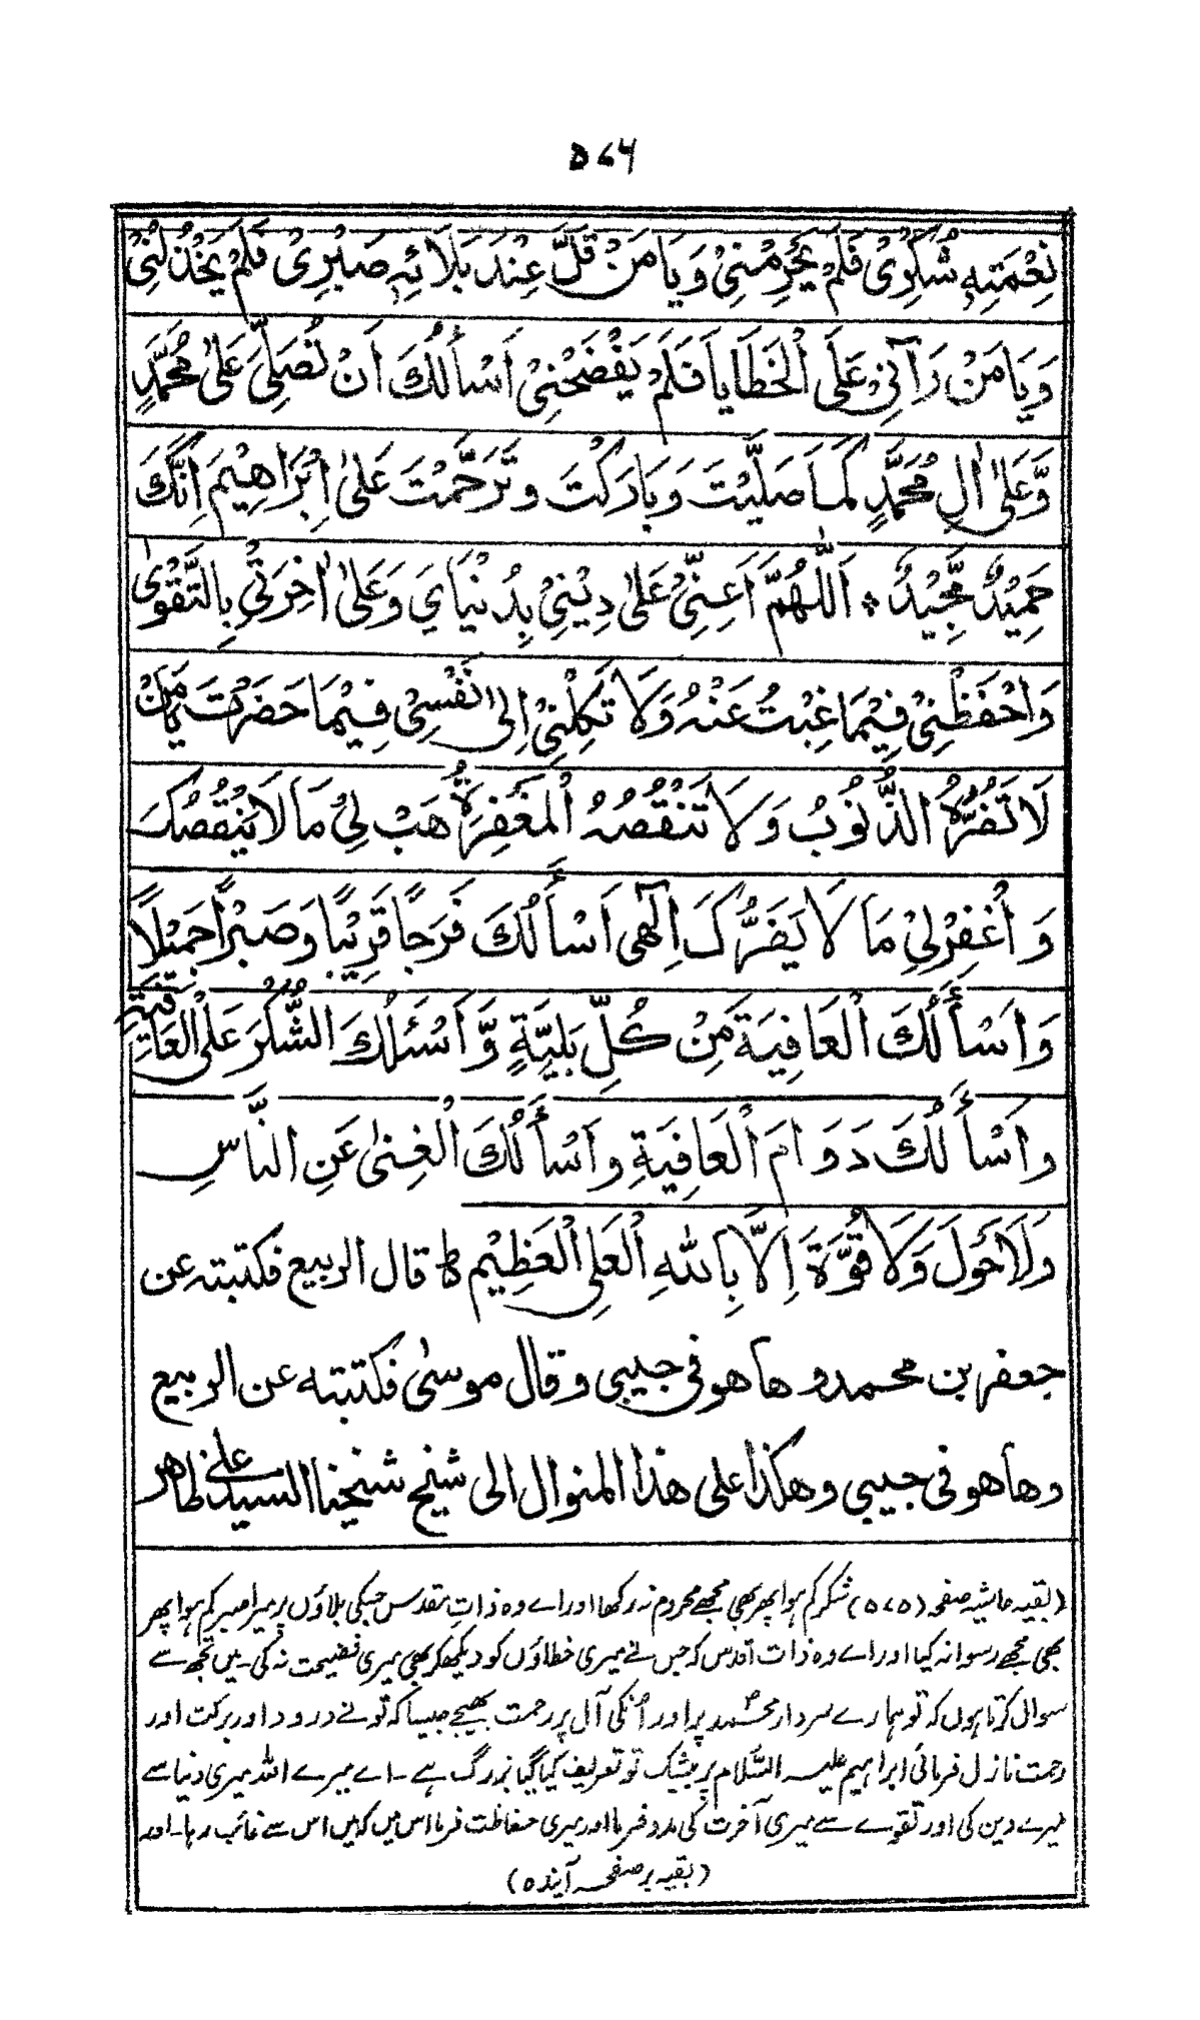 ۵۷۶
نِعْمَتِهٖ شُكْرِىْ فَلَمْ يَحْرِمْنِىْ وَيَا مَنْ قَلَّ عِنْدَ بَلَائِهٖ صَبْرِىْ فَلَمْ يَخْذُلْنِىْ
وَيَا مَنْ رَآنِىْ عَلَى الْخَطَايَا فَلَمْ يَفْضَحْنِىْ اَسْأَلُكَ اَنْ تُصَلِّىَ عَلٰى مُحَمَّدٍ
وَّعَلٰى اٰلِ مُحَمَّدٍ كَمَا صَلَّيْتَ وَبَارَكْتَ وتَرَحَّمْتَ عَلٰى اِبْرَاهِيْمَ اِنَّكَ
حَمِيْدٌ مَّجِيْدٌ ۞ اَللّٰهُمَّ اَعِنِّىْ عَلٰى دِيْنِىْ بِدُنْيَاىَ وَعَلٰى اٰخِرَتِىْ بِالتَّقْوٰى
وَاحْفَظْنِىْ فِيْمَا غِبْتُ عَنْهُ وَلَا تَكِلْنِىْ اِلٰى نَفْسِىْ فِيْمَا حَضَرْتَ يَا مَنْ
لَا تَضُرُّهُ الذُّنُوْبُ وَلَا تَنْقُصُهُ الْمَغْفِرَةُ هَبْ لِىْ مَا لَا يَنْقُصُكَ
وَ اغْفِرْلِىْ مَا لَا يَضُرُّكَ اِلٰهِى اَسْأَلُكَ فَرَجًا قَرِيْبًا وَصَبْرًا جَمِيْلًا
وَاَسْأَلُكَ الْعَافِيَةَ مِنْ كُلِّ بَلِيَّةٍ وَّ اَسْئَلُكَ الشُّكْرَ عَلَى الْعَافِيَةِ
واَسْأَلُكَ دَوَامَ الْعَافِيَةِ واَسْأَلُكَ الْغِنٰى عَنِ النَّاسِ
وَلَا حَوْلَ وَلَا قُوَّةَ اِلَّا بِاللّٰهِ الْعَلِى الْعَظِيْمِ ط قال الربيع فكتبته عن
جعفر بن محمد وها هو فى جيبى وقال موسٰى فكتبته عن الربيع
وها هو فى جيبى وهكذا على هذا المنوال الى شيخ شيخنا السيد على طاهر
(بقیہ حاشیہ صفحہ ۵۷۵) شکر کم ہوا پھر بھی مجھے محروم نہ رکھا اور اے وہ ذاتِ مقدس جسکی بلاؤں پر میرا صبر کم ہوا پھر
بھی مجھے رسوا نہ کیا اور اے وہ ذات اقدس کہ جس نے میری خطاؤں کو دیکھ کر بھی میری فضیحت نہ کی۔ میں تجھ سے
سوال کرتا ہوں کہ تو ہمارے سردار محمدؐ پر اور اُنکی آل پر رحمت بھیجے جیسا کہ تو نے درود اور برکت اور
رحمت نازل فرمائی ابراہیم علیہ السّلام پر بیشک تو تعریف کیا گیا بزرگ ہے۔ اے میرے اللہ میری دنیا سے
میرے دین کی اور تقوے سے میری آخرت کی مدد فرما اور میری حفاظت فرما اس میں کہ میں اس سے غائب رہا۔ اور
(بقیہ بر صفحہ آیندہ)